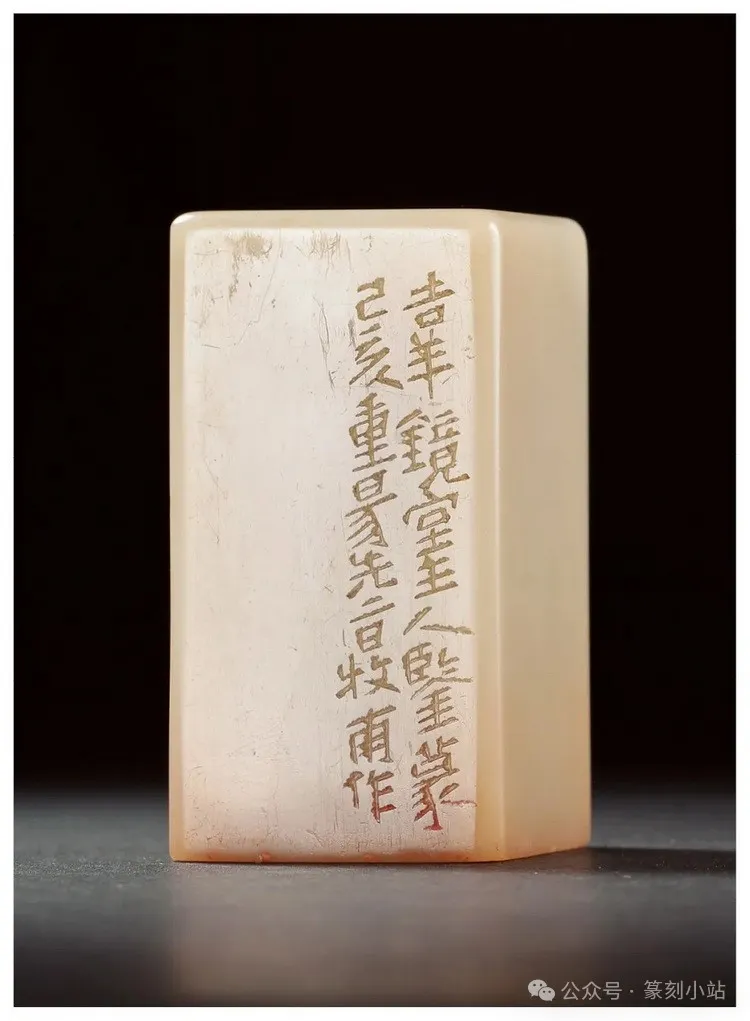 吉羊鏡室主人鑒篆
己亥重昜先一日牧甫作
公众号 · 篆刻小站